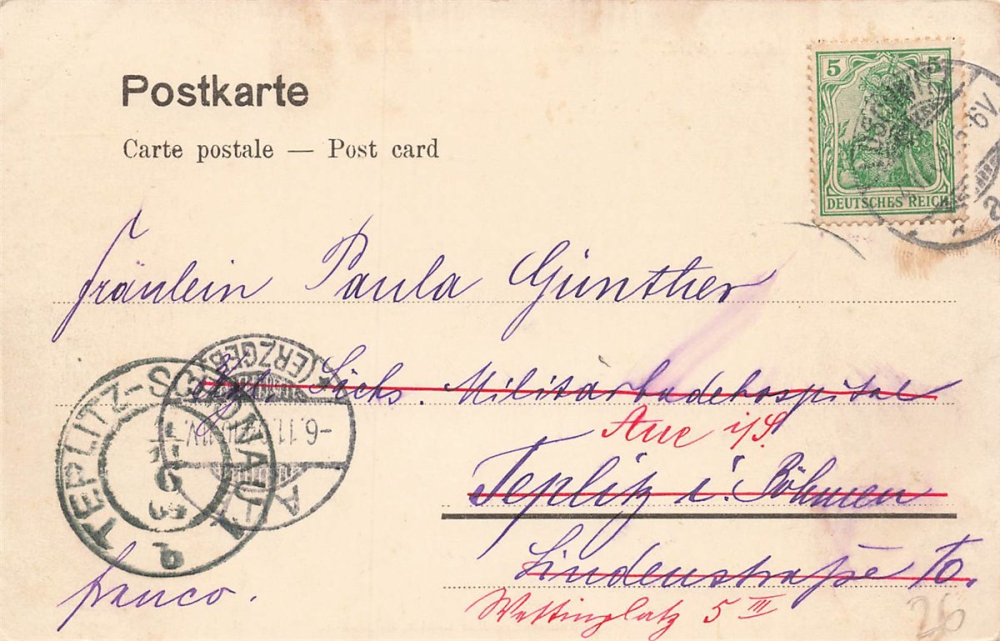 Postkarte
Carte postale — Post card
5 5
DEUTSCHES REICH
Fräulein Paula Günther
Kgl. Sächs. Militärbadehospital
Aue i/S.
Teplitz i. Böhmen
Lindenstraße 10.
Wettinplatz 5 III
franco.
TEPLITZ-SCHÖNAU 1
(ERZGEB.)
-6.11.
A
26